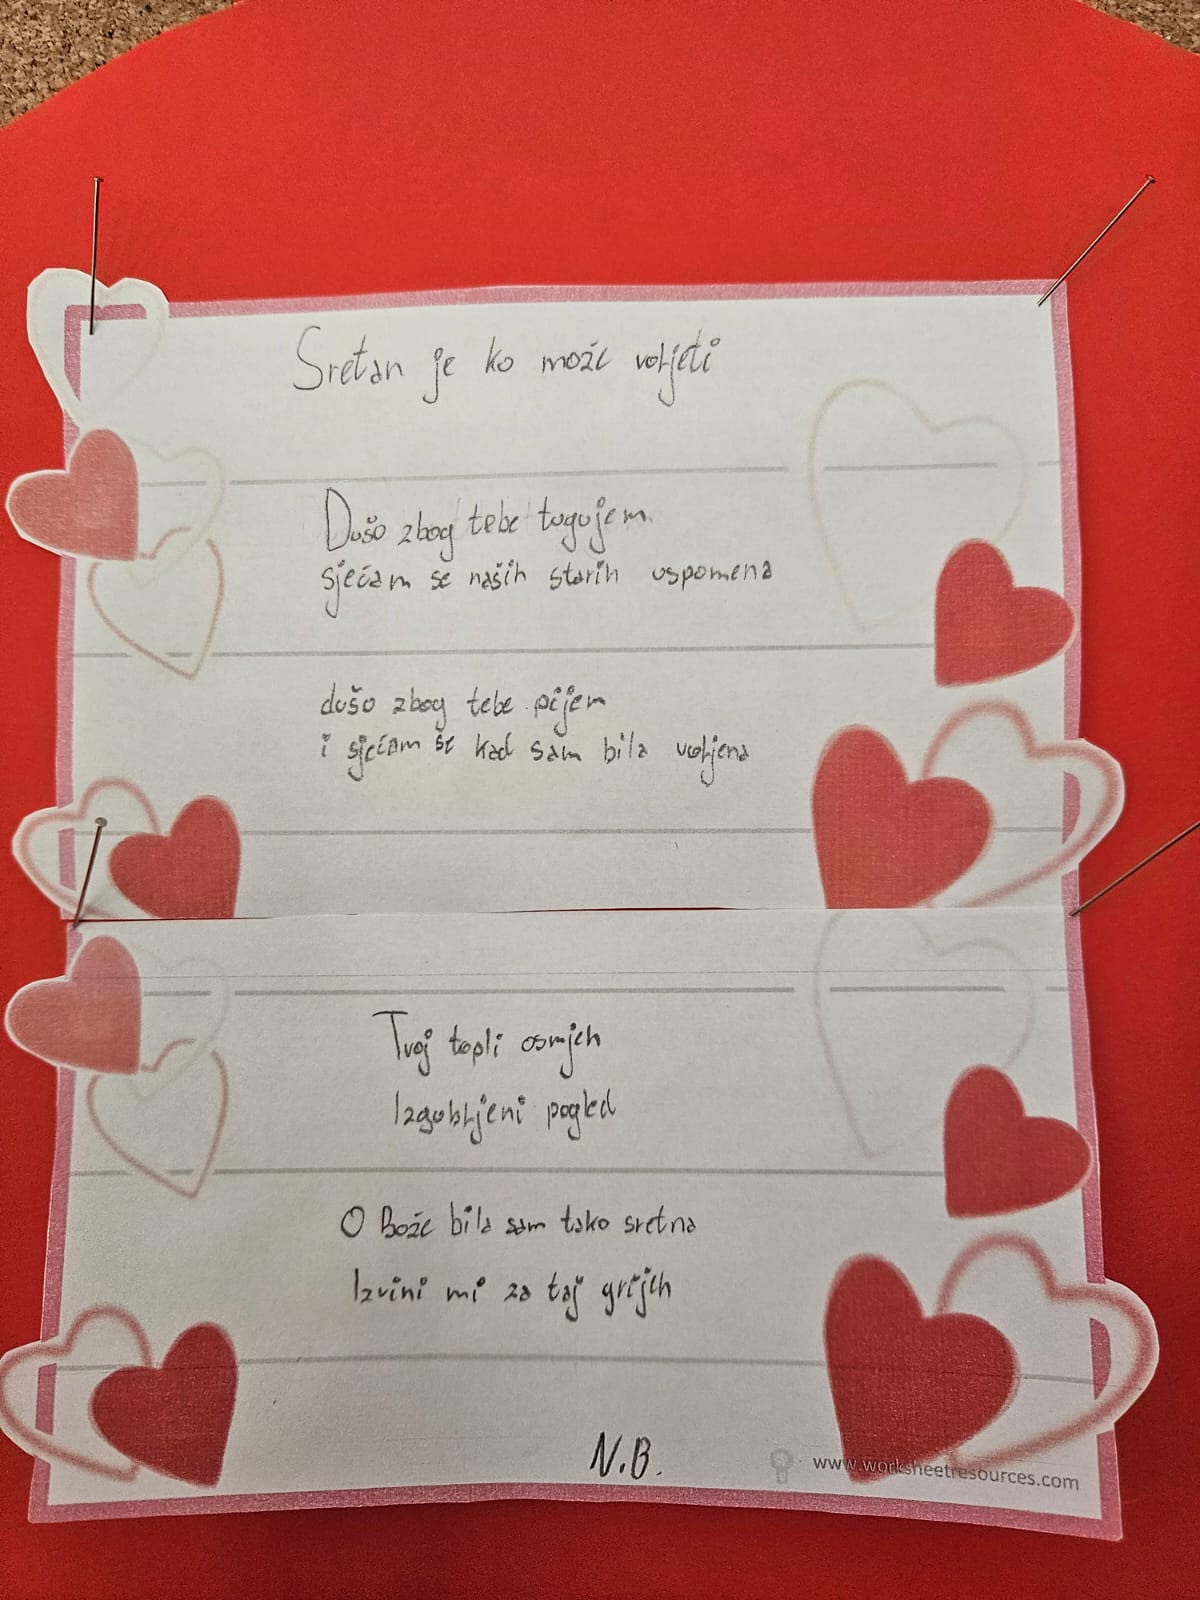 Sretan je ko može voljeti
Dušo zbog tebe tugujem
sjećam se naših starih uspomena
dušo zbog tebe pijem
i sjećam se kad sam bila voljena
Tvoj topli osmjeh
Izgubljeni pogled
O Bože bila sam tako sretna
Izvini mi za taj grijeh
N.B.
www.worksheetresources.com